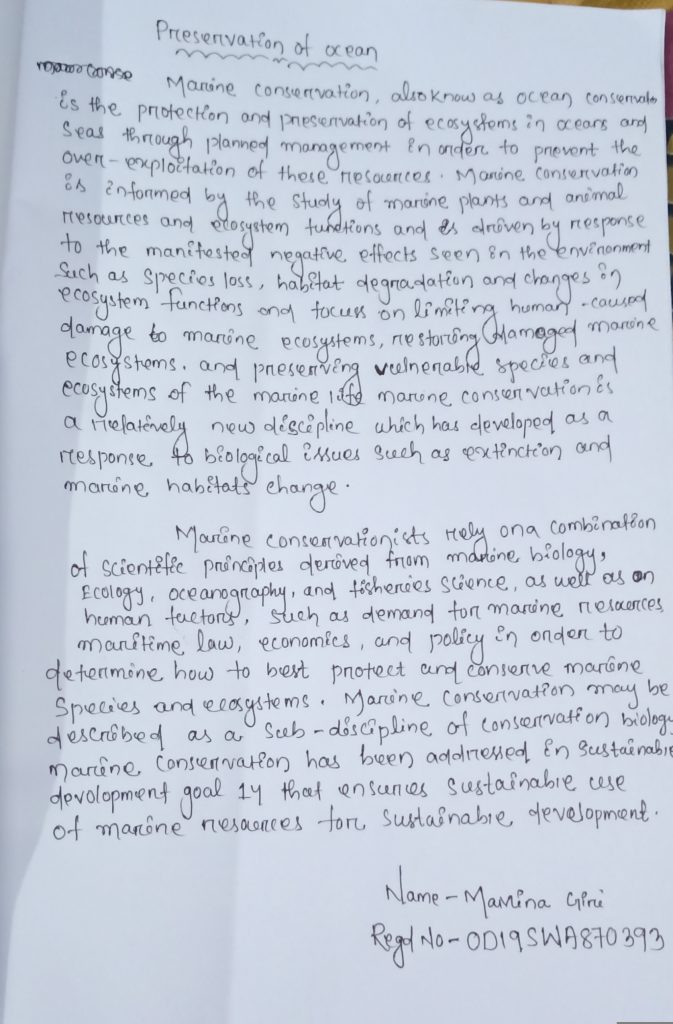 Preservation of ocean
Marine conservation, also know as ocean conservatio
is the protection and preservation of ecosystems in oceans and
Seas through planned management in order to prevent the
over-exploitation of these resources. Marine conservation
is informed by the study of marine plants and animal
resources and ecosystem functions and is driven by response
to the manifested negative effects seen in the environment
Such as species loss, habitat degradation and changes in
ecosystem functions and focuss on limiting human-caused
damage to marine ecosystems, restoring damaged marine
ecosystems. and preserving vulnerable species and
ecosystems of the marine life marine conservation is
a relatively new discipline which has developed as a
response to biological issues such as extinction and
marine habitats change.
Marine conservationists rely on a combination
of scientific principles derived from marine biology,
Ecology, oceanography, and fisheries science, as well as on
human factors, such as demand for marine resources
maritime law, economics, and policy in order to
determine how to best protect and conserve marine
Species and ecosystems. Marine conservation may be
described as a Sub-discipline of conservation biology
marine conservation has been addressed in sustainable
devolopment goal 14 that ensures sustainable use
of marine resources for sustainable development.
Name-Mamina Giri
Regd No-OD19SWA870393